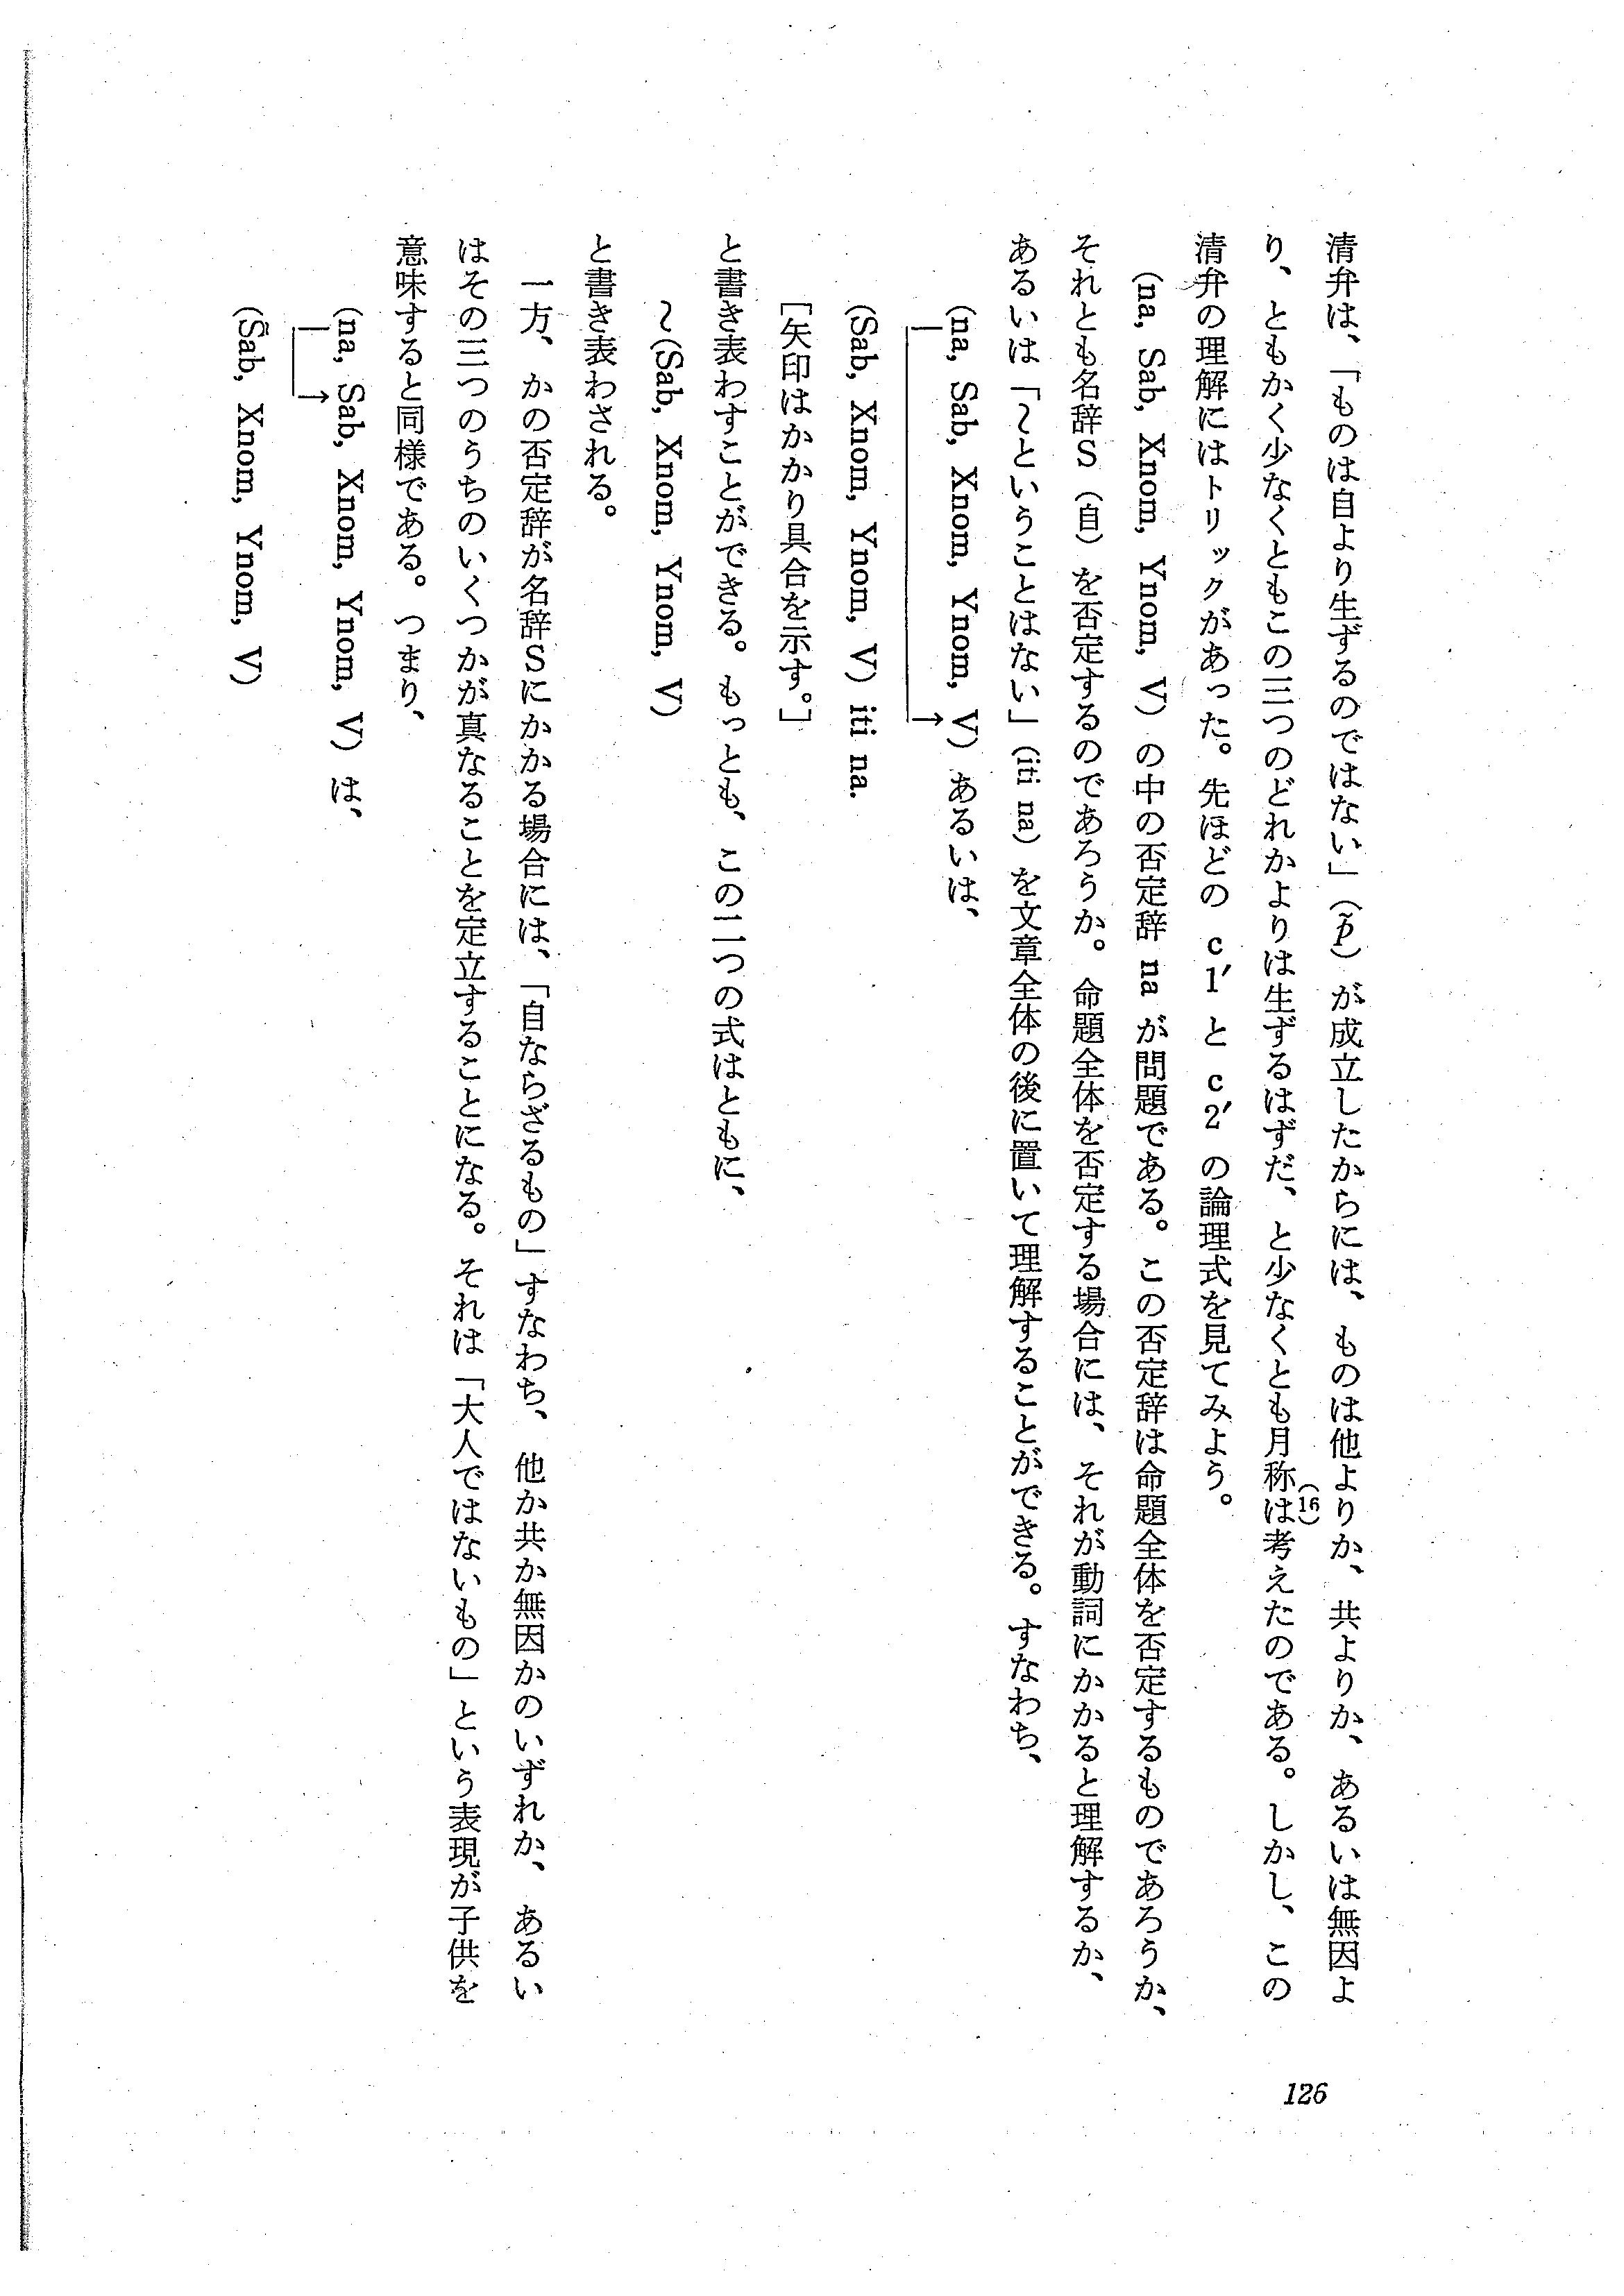 清弁は、「ものは自より生ずるのではない」（p̃）が成立したからには、ものは他よりか、共よりか、あるいは無因よ
り、ともかく少なくともこの三つのどれかよりは生ずるはずだ、と少なくとも月称は考えたのである。しかし、この
(16)
清弁の理解にはトリックがあった。先ほどの c1′ と c2′ の論理式を見てみよう。
(na, Sab, Xnom, Ynom, V) の中の否定辞 na が問題である。この否定辞は命題全体を否定するものであろうか、
それとも名辞S（自）を否定するのであろうか。命題全体を否定する場合には、それが動詞にかかると理解するか、
あるいは「〜ということはない」(iti na) を文章全体の後に置いて理解することができる。すなわち、
(na, Sab, Xnom, Ynom, V) あるいは、
(Sab, Xnom, Ynom, V) iti na.
［矢印はかかり具合を示す。］
と書き表わすことができる。もっとも、この二つの式はともに、
〜(Sab, Xnom, Ynom, V)
と書き表わされる。
一方、かの否定辞が名辞Sにかかる場合には、「自ならざるもの」すなわち、他か共か無因かのいずれか、あるい
はその三つのうちのいくつかが真なることを定立することになる。それは「大人ではないもの」という表現が子供を
意味すると同様である。つまり、
(na, Sab, Xnom, Ynom, V) は、
(S̃ab, Xnom, Ynom, V)
126